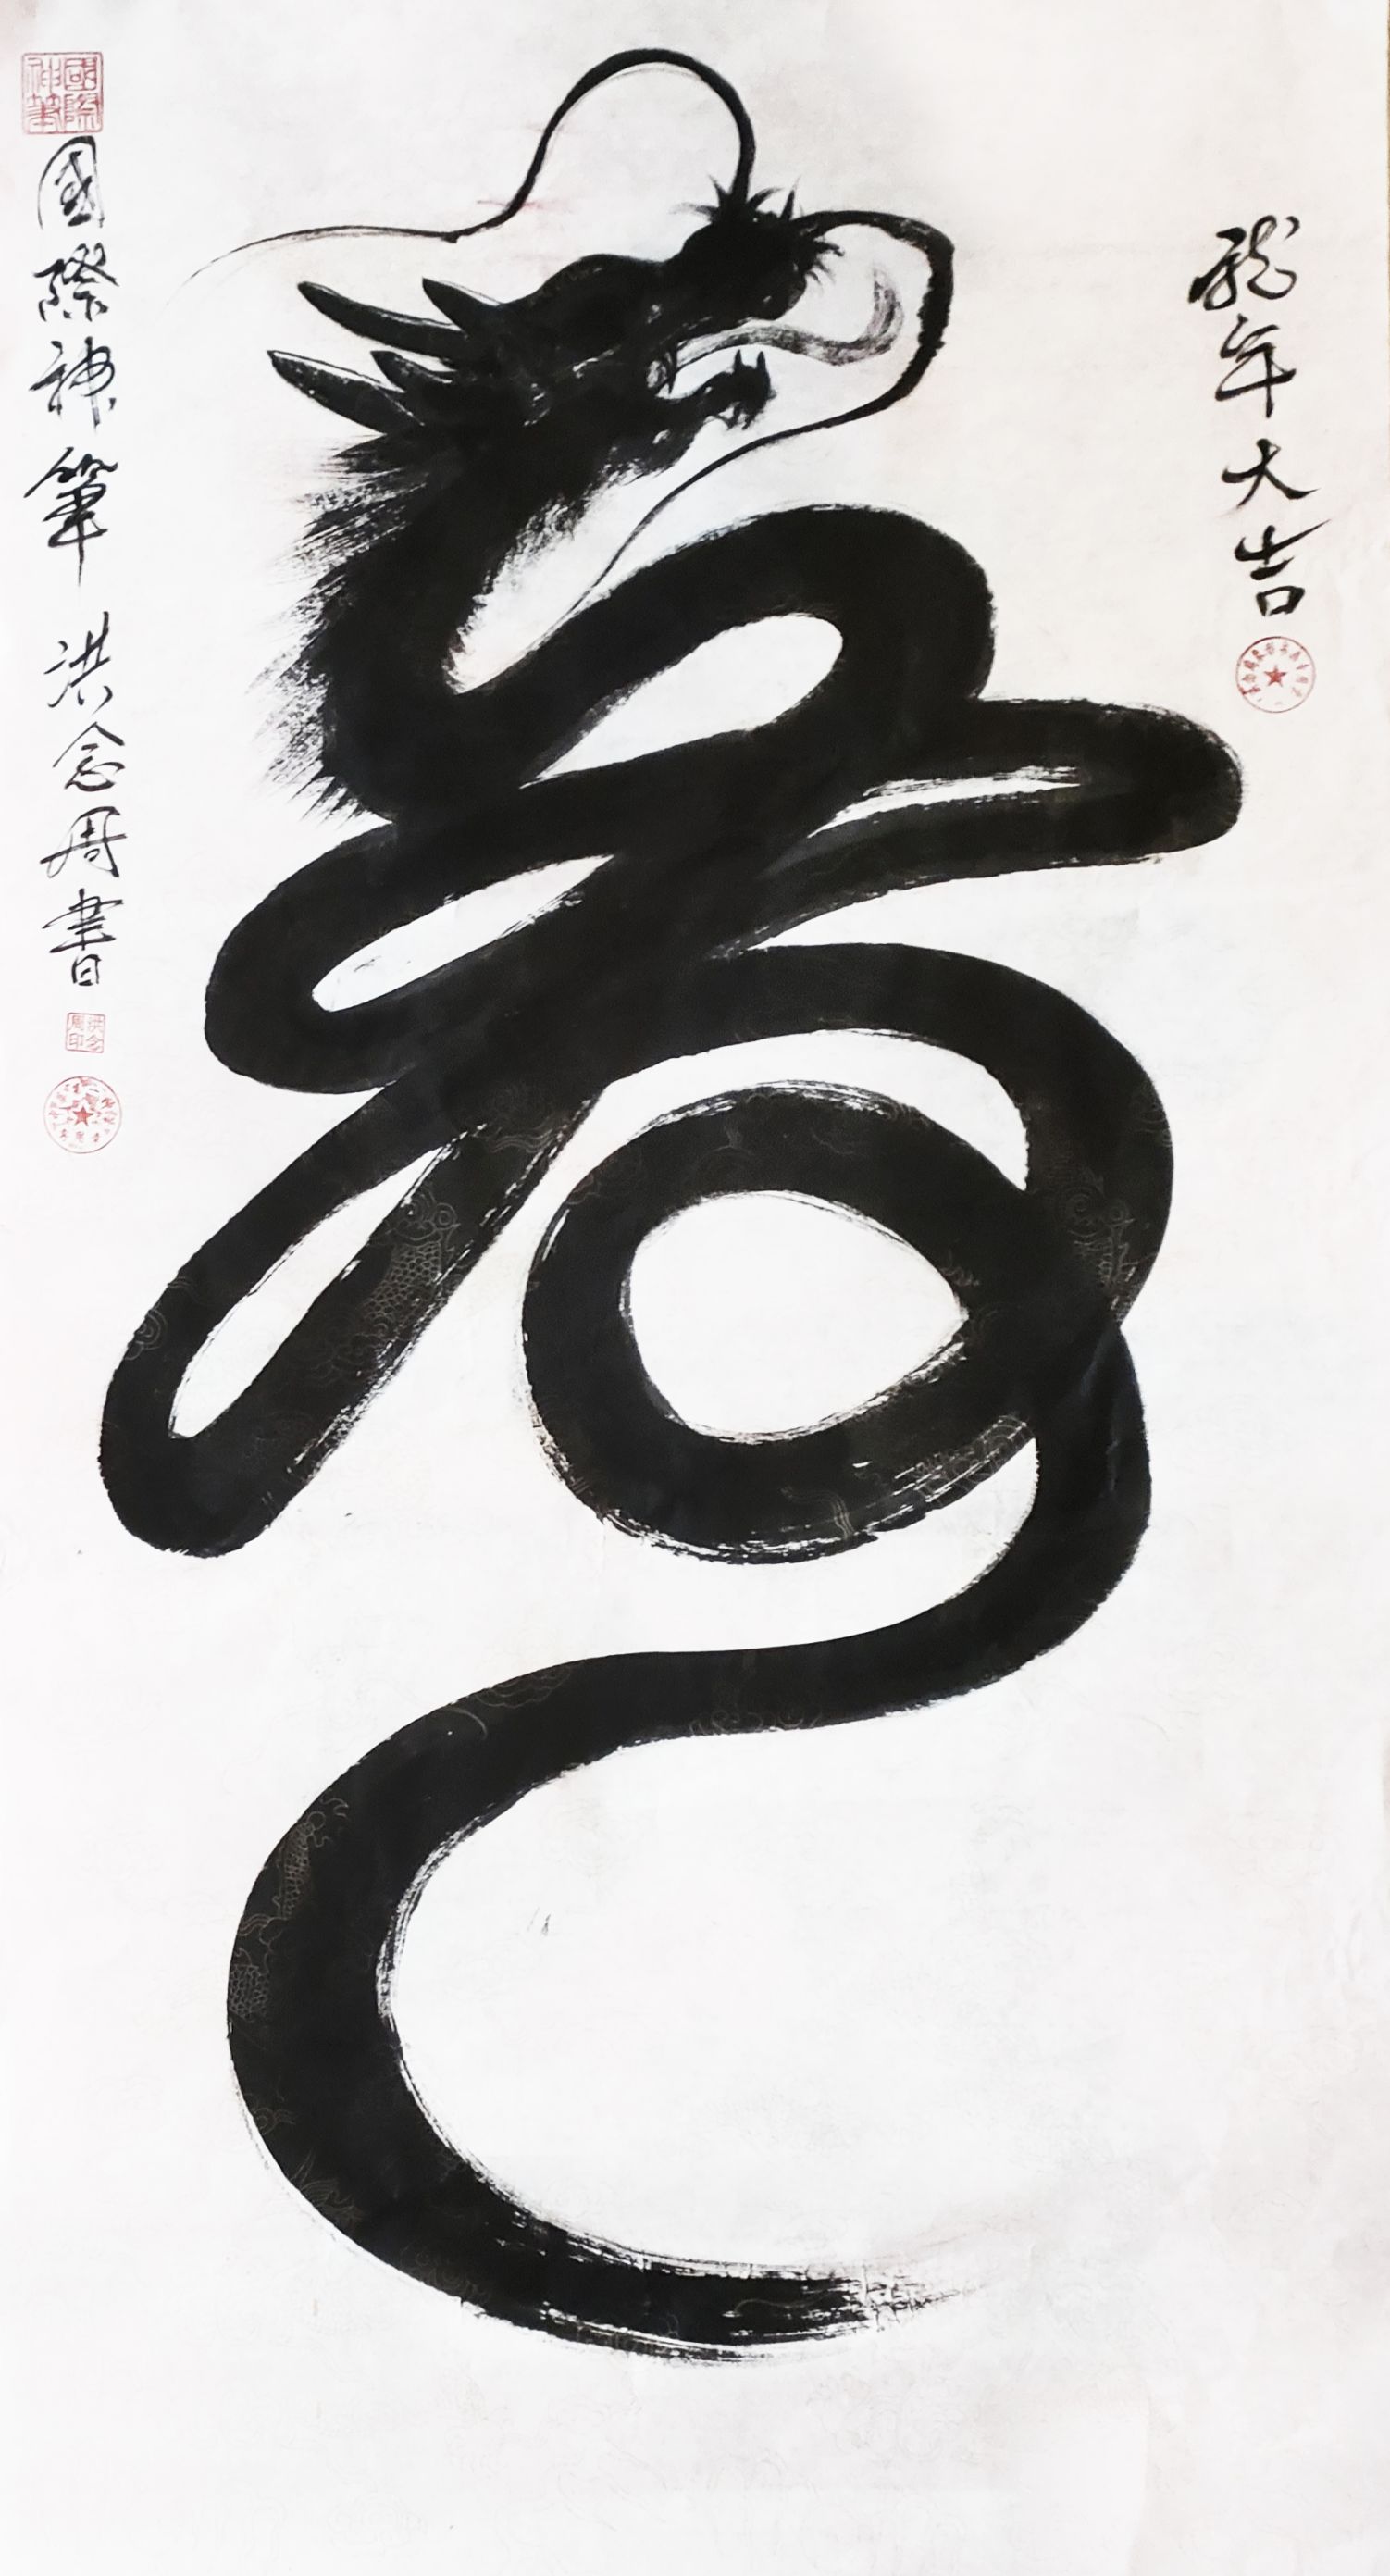 龍年大吉
國際神筆 洪念周書
國際神筆
洪念周印